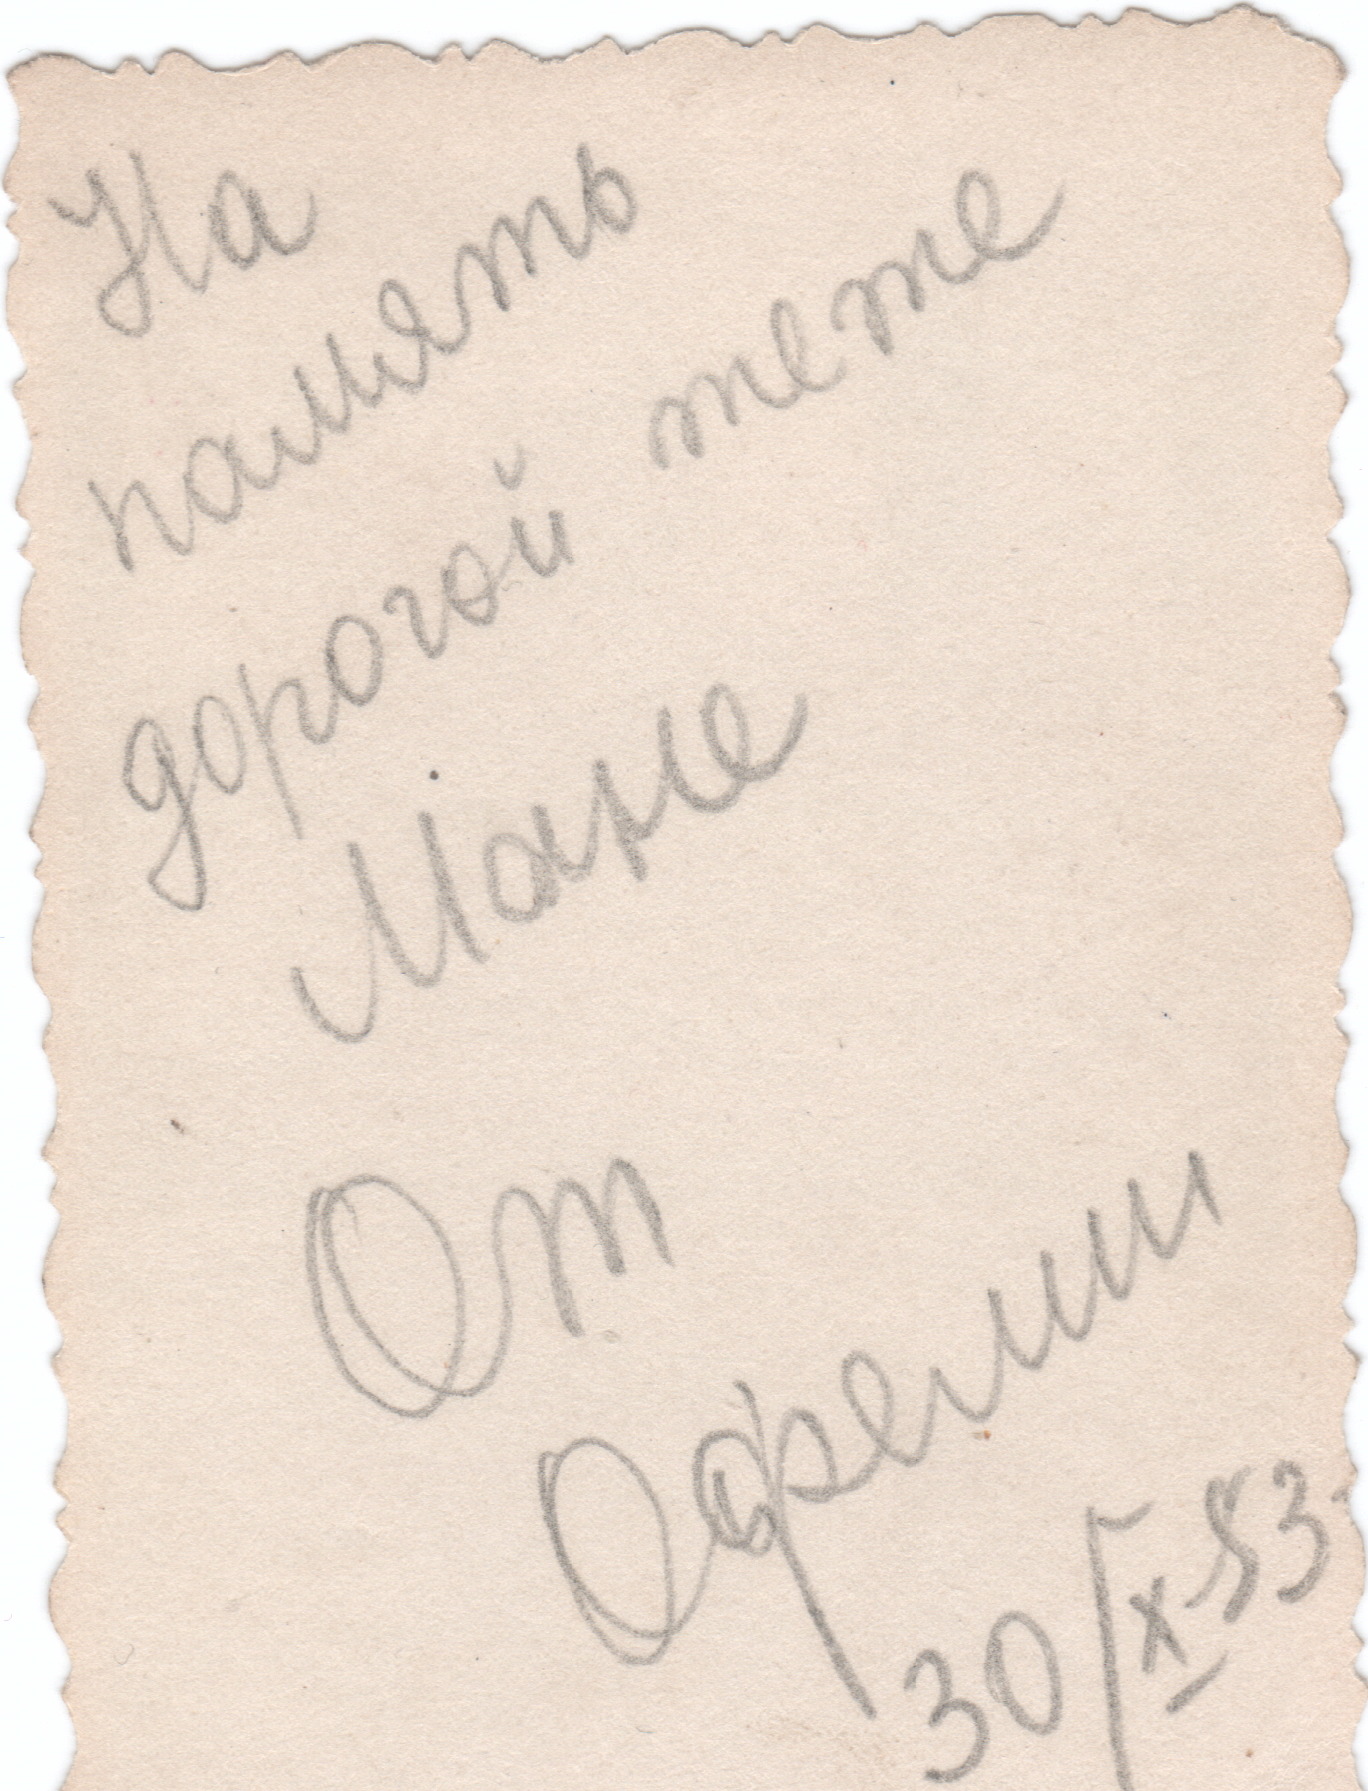 На
память
дорогой тете
Мане
От
Офелии
30/X-53